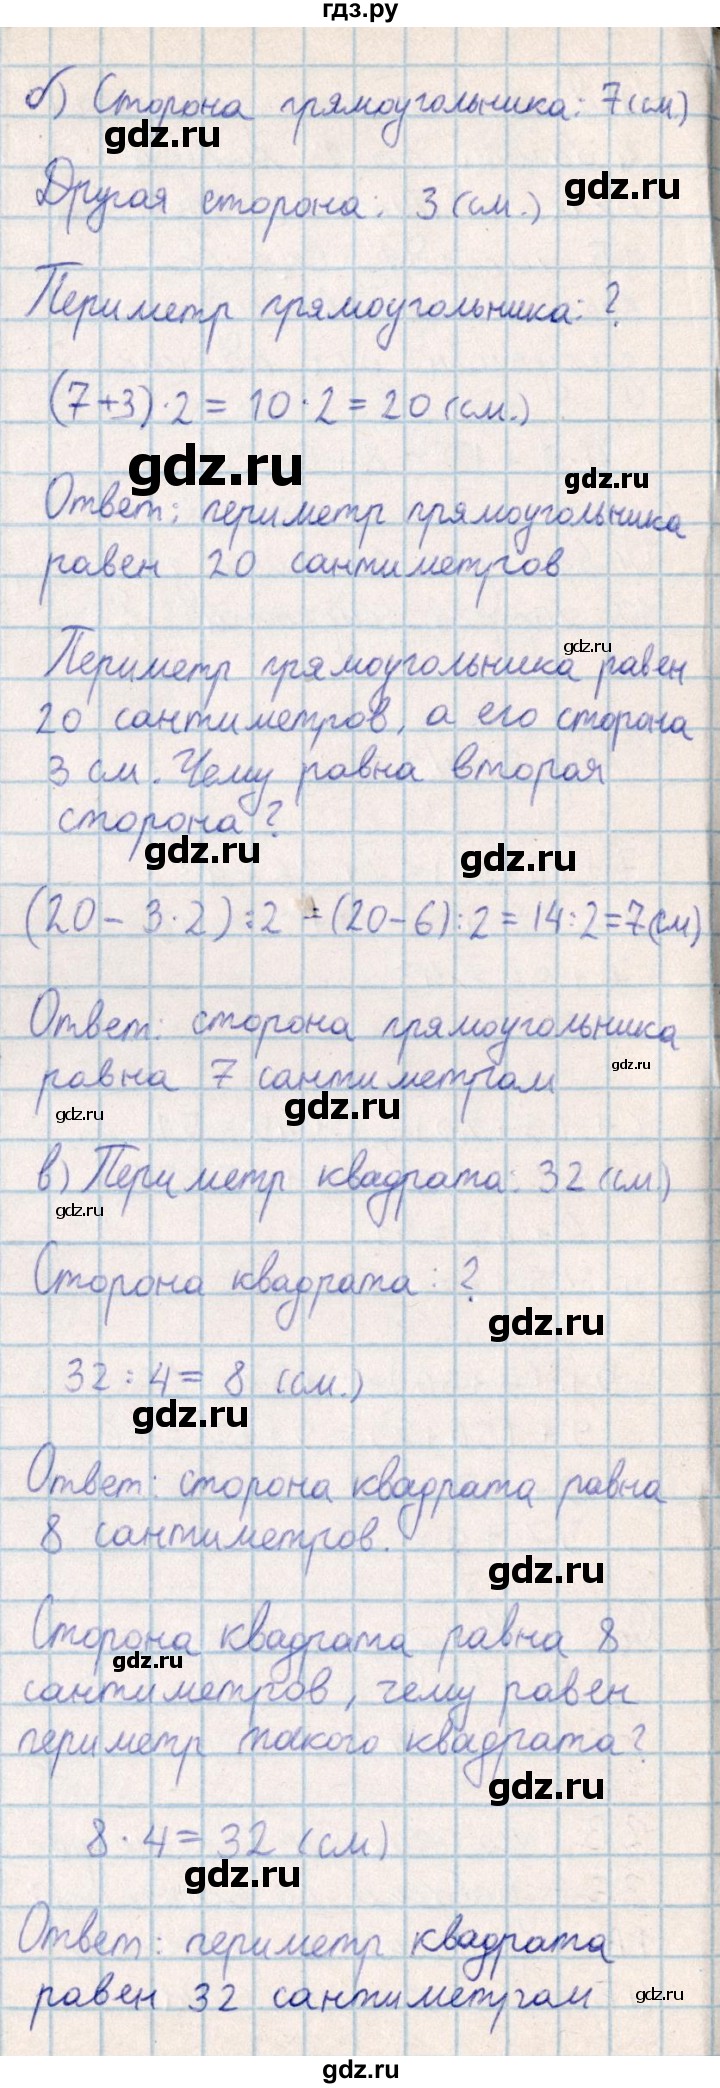 гдз.ру
б) Сторона прямоугольника: 7 (см.)
gdz.ru
Другая сторона: 3 (см.)
gdz.ru
Периметр прямоугольника: ?
(7+3)·2 = 10·2 = 20 (см.)
gdz.ru
gdz.ru
Ответ: периметр прямоугольника
равен 20 сантиметров
gdz.ru
Периметр прямоугольника равен
20 сантиметров, а его сторона
3 см. Чему равна вторая
сторона?
gdz.ru
gdz.ru
(20 - 3·2):2 = (20-6):2 = 14:2=7(см)
Ответ: сторона прямоугольника
gdz.ru
равна 7 сантиметрам
gdz.ru
gdz.ru
в) Периметр квадрата: 32 (см.)
gdz.ru
Сторона квадрата: ?
gdz.ru
32:4 = 8 (см.)
gdz.ru
Ответ: сторона квадрата равна
8 сантиметров.
gdz.ru
Сторона квадрата равна 8
gdz.ru
сантиметров, чему равен
периметр такого квадрата?
gdz.ru
8·4 = 32 (см)
gdz.ru
Ответ: периметр квадрата
равен 32 сантиметрам
gdz.ru
gdz.ru